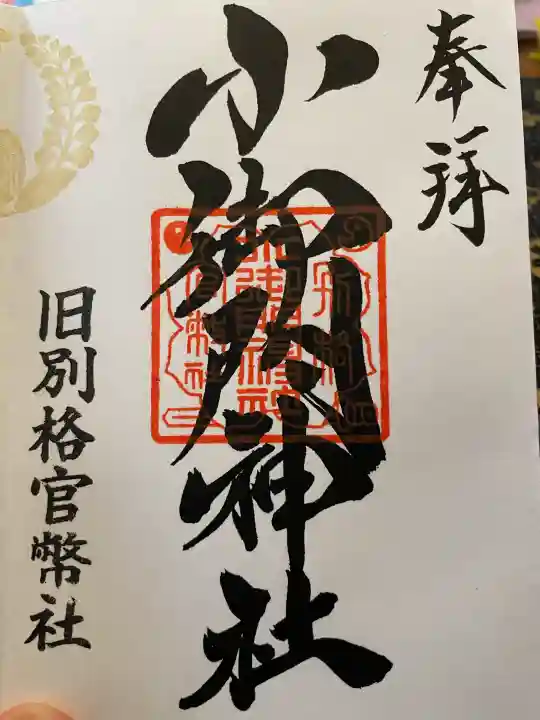 奉拝
小御門神社
旧別格官幣社